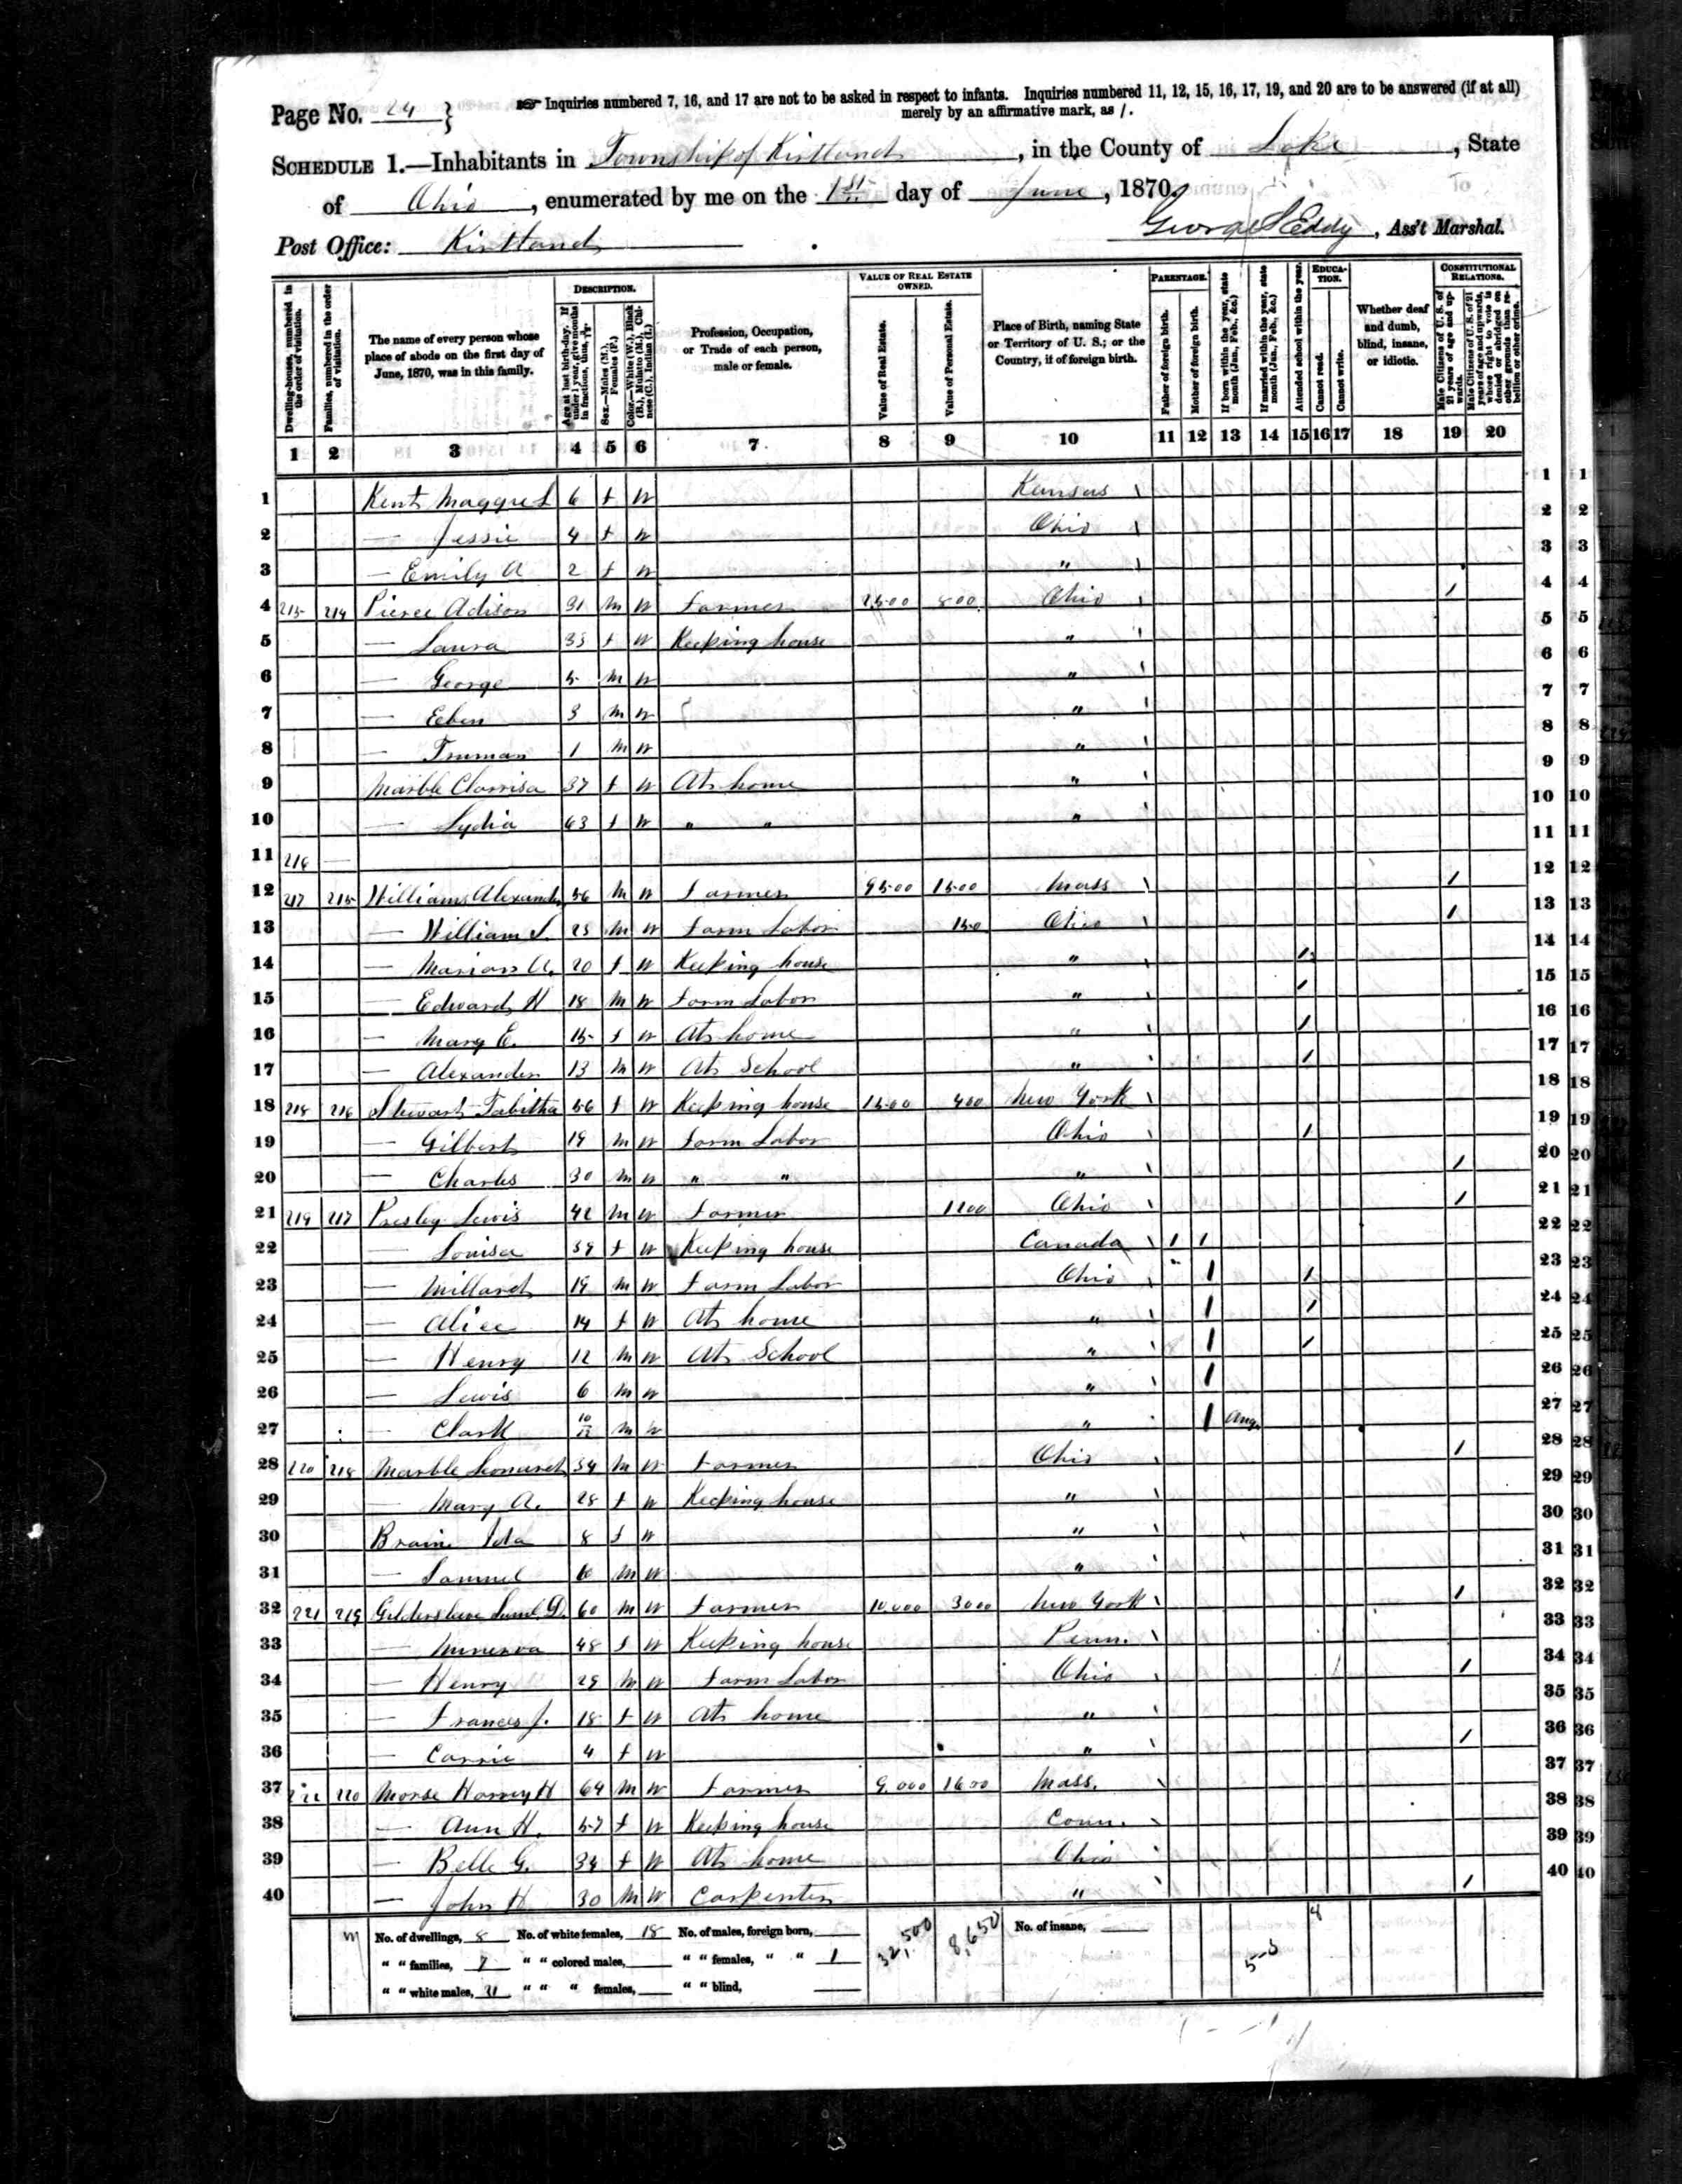 Page No. 24 } Inquiries numbered 7, 16, and 17 are not to be asked in respect to infants. Inquiries numbered 11, 12, 15, 16, 17, 19, and 20 are to be answered (if at all)
merely by an affirmative mark, as /.
SCHEDULE 1.—Inhabitants in Township of Kirtland, in the County of Lake, State
of Ohio, enumerated by me on the 1st day of June, 1870.
Post Office: Kirtland George Eddy, Ass't Marshal.
Dwelling-houses, numbered in the order of visitation.
Families, numbered in the order of visitation.
The name of every person whose place of abode on the first day of June, 1870, was in this family.
DESCRIPTION.
Age at last birth-day. If under 1 year, give months in fractions, thus,
Sex.—Males (M.), Females (F.)
Color.—White (W.), Black (B.), Mulatto (M.), Chinese (C.), Indian (I.)
Profession, Occupation, or Trade of each person, male or female.
VALUE OF REAL ESTATE OWNED.
Value of Real Estate.
Value of Personal Estate.
Place of Birth, naming State or Territory of U. S.; or the Country, if of foreign birth.
PARENTAGE.
Father of foreign birth.
Mother of foreign birth.
If born within the year, state month (Jan., Feb., &c.)
If married within the year, state month (Jan., Feb., &c.)
Attended school within the year.
EDUCATION.
Cannot read.
Cannot write.
Whether deaf and dumb, blind, insane, or idiotic.
CONSTITUTIONAL RELATIONS.
Male Citizens of U. S. of 21 years of age and upwards.
Male Citizens of U. S. of 21 years of age and upwards, whose right to vote is denied or abridged on other grounds than rebellion or other crime.
1 2 3 4 5 6 7 8 9 10 11 12 13 14 15 16 17 18 19 20
1 Kent Maggie L 6 f W Kansas 1
2 — Jessie 4 f W Ohio 2
3 — Emily A 2 f W " 3
4 215 214 Pierce Adison 31 M W Farmer 2500 800 Ohio / 4
5 — Laura 33 f W Keeping house " 5
6 — George 5 M W " 6
7 — Eben 3 M W " 7
8 — Truman 1 M W " 8
9 Marble Clarrisa 37 f W At home " 9
10 — Lydia 63 f W " " " 10
11 216 — 11
12 217 215 Williams Alexander 56 M W Farmer 9500 1500 Mass / 12
13 — William S. 23 M W Farm Labor 150 Ohio / 13
14 — Marion A. 20 f W Keeping house " / 14
15 — Edward H 18 M W Farm Labor " / 15
16 — Mary E. 15 f W At home " / 16
17 — Alexander 13 M W At School " / 17
18 218 216 Stewart Tabitha 56 f W Keeping house 1500 400 New York 18
19 — Gilbert 19 M W Farm Labor Ohio / 19
20 — Charles 30 M W " " " / 20
21 219 217 Presley Lewis 42 M W Farmer 1200 Ohio / 21
22 — Louisa 39 f W Keeping house Canada / / 22
23 — Millard 19 M W Farm Labor Ohio / / 23
24 — Alice 14 f W At home " / / 24
25 — Henry 12 M W At School " / / 25
26 — Lewis 6 M W " / 26
27 — Clark 10/12 M W " / Aug. 27
28 220 218 Marble Leonard 34 M W Farmer Ohio / 28
29 — Mary A. 28 f W Keeping house " 29
30 Ida 8 f W " 30
31 — Samuel 6 M W " 31
32 221 219 Gildersleeve Saml. D. 60 M W Farmer 10,000 3000 New York / 32
33 — Minerva 48 f W Keeping house Penn. 33
34 — Henry 29 M W Farm Labor Ohio / 34
35 — Frances J. 18 f W At home " 35
36 — Carrie 4 f W " / 36
37 222 220 Morse Harvey H 64 M W Farmer 9,000 1600 Mass. 37
38 — Ann H. 57 f W Keeping house Conn. 38
39 — Belle G. 34 f W At home Ohio 39
40 — John H 30 M W Carpenter " / 40
No. of dwellings, 8 No. of white females, 18 No. of males, foreign born, 32,500 8,650 No. of insane, 8
" " families, 7 " " colored males, " " females, " " 1
" " white males, 21 " " " females, " " blind,